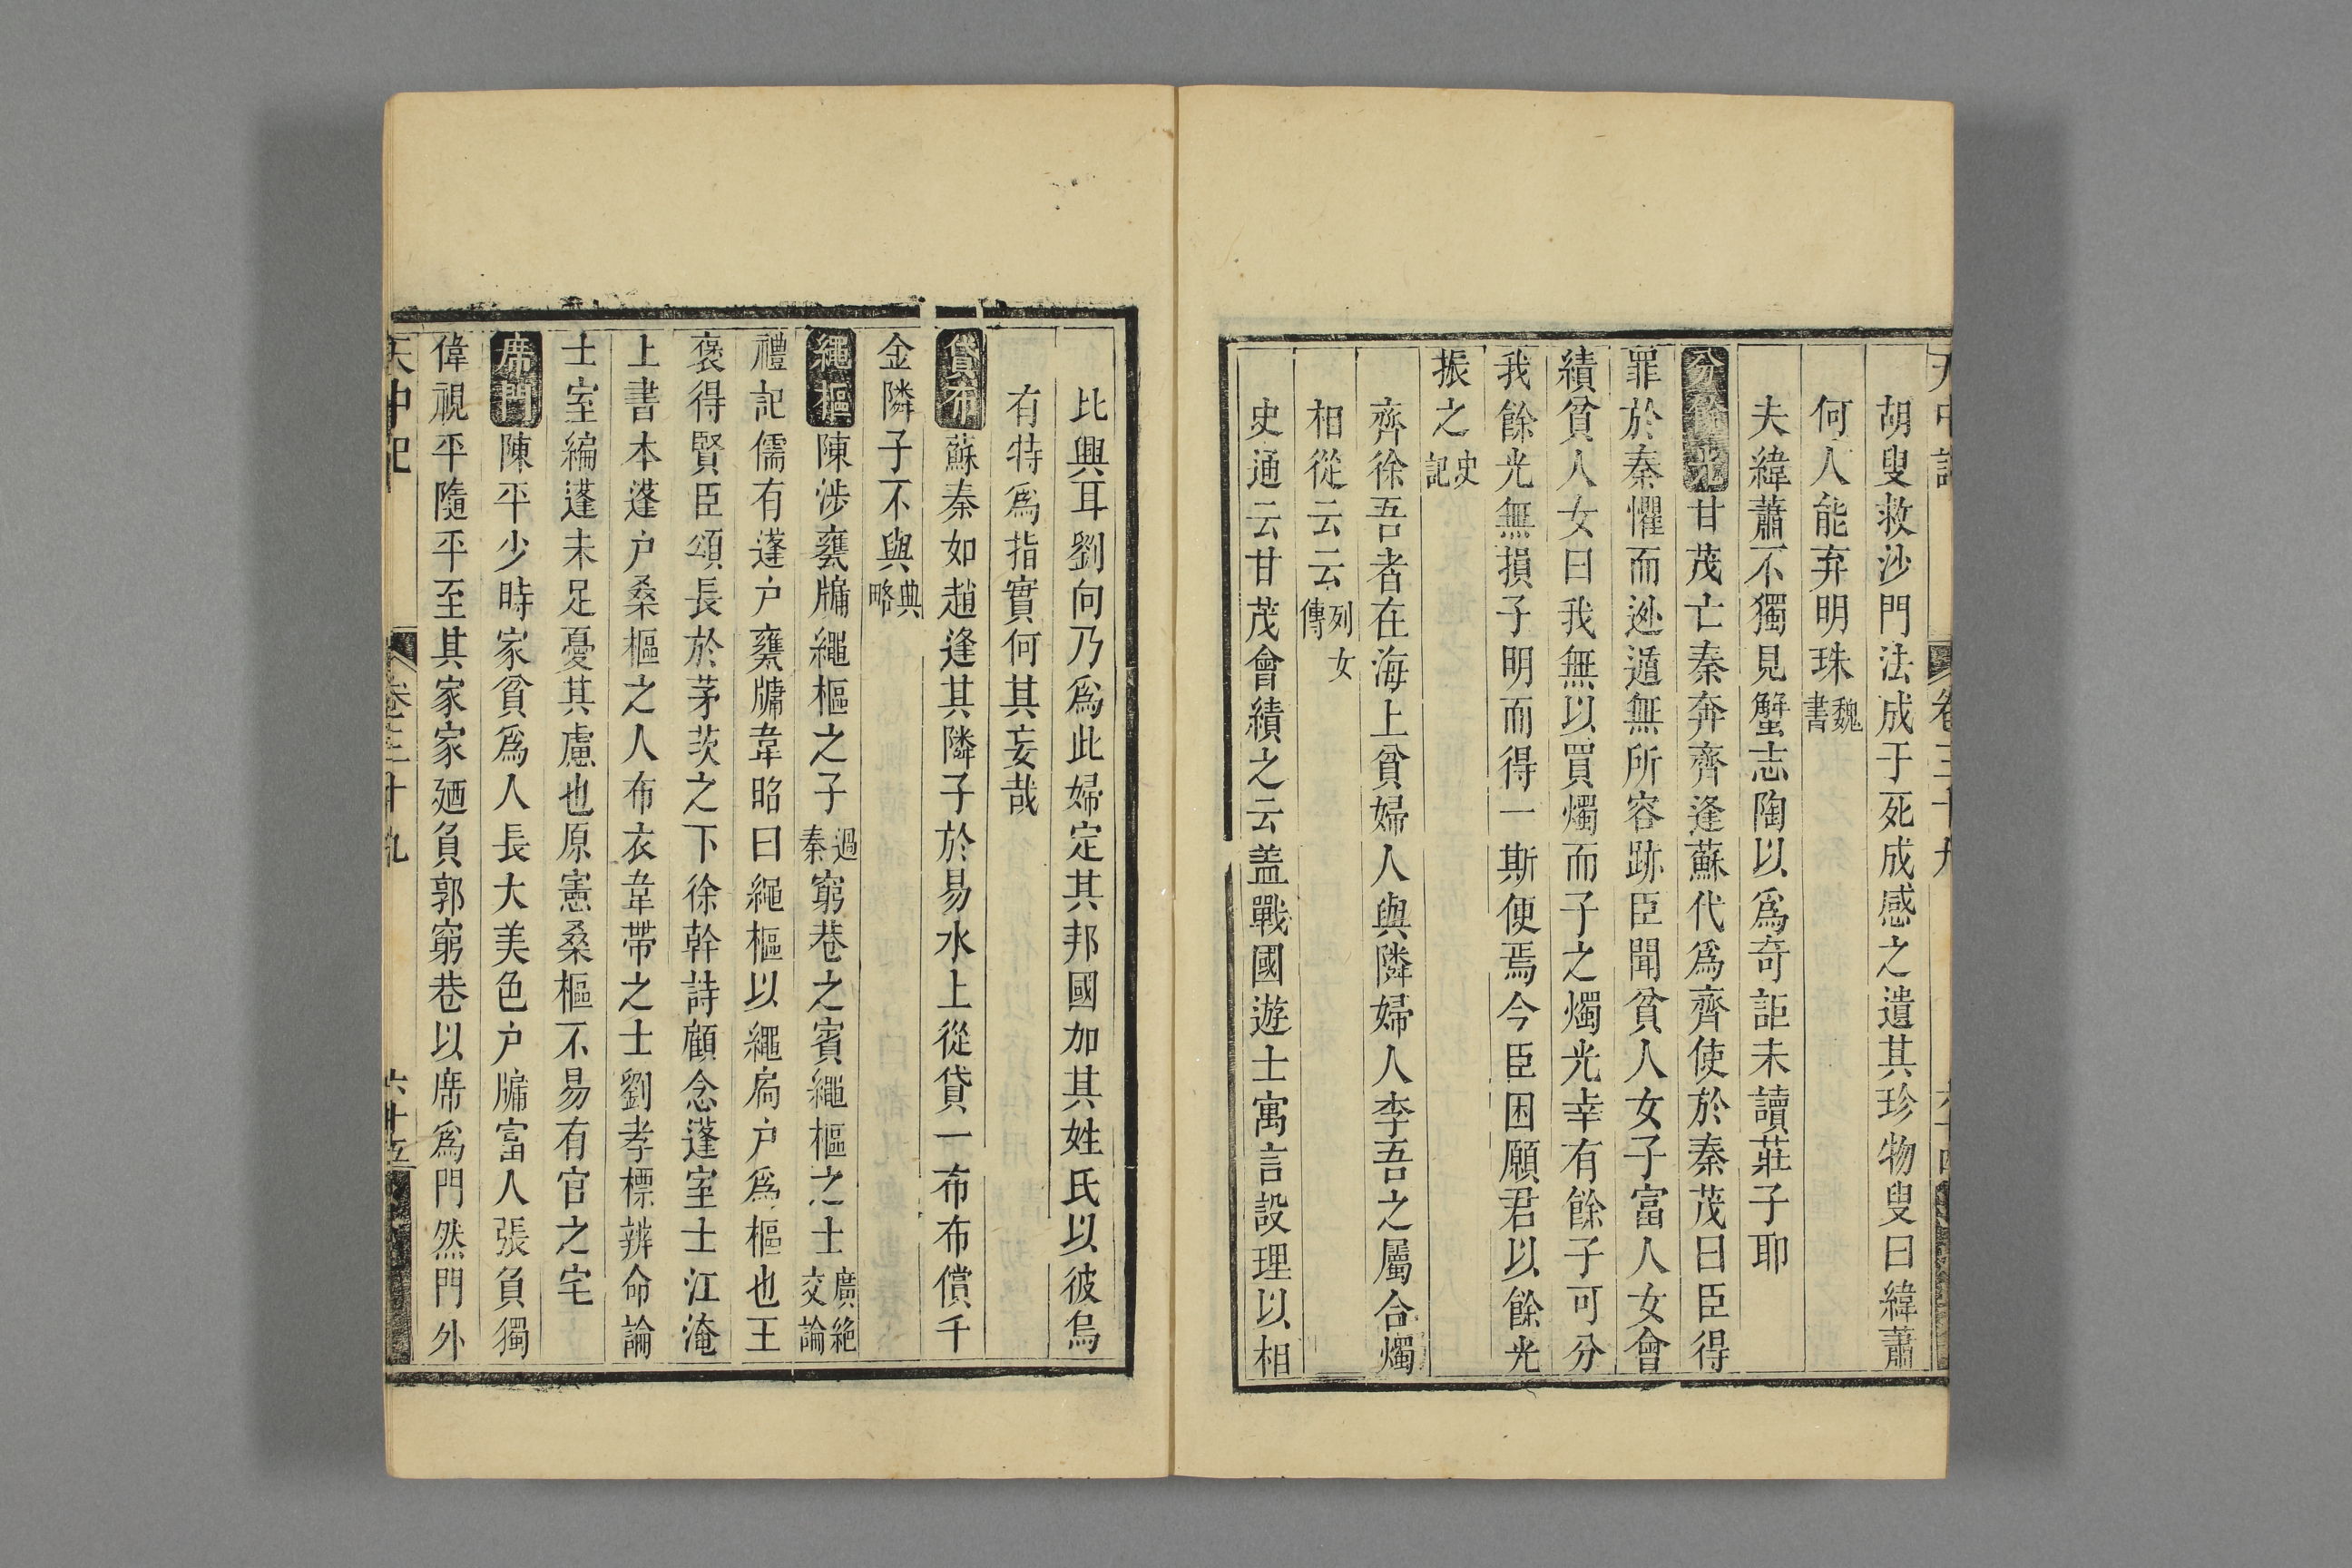 胡叟救沙門法成于死成感之遺其珍物叟曰緯蕭
何人能弃明珠魏書
夫緯蕭不獨見蟹志陶以爲奇詎未讀莊子耶
分餘光甘茂亡秦奔齊逢蘇代爲齊使於秦茂曰臣得
罪於秦懼而迯遁無所容跡臣聞貧人女子富人女會
績貧人女曰我無以買燭而子之燭光幸有餘子可分
我餘光無損子明而得一斯便焉今臣困願君以餘光
振之史記
齊徐吾者在海上貧婦人與隣婦人李吾之屬合燭
相從云云列女傳
史通云甘茂會績之云盖戰國遊士寓言設理以相
比興耳劉向乃爲此婦定其邦國加其姓氏以彼烏
有特爲指實何其妄哉
貸布蘇秦如趙逢其隣子於易水上從貸一布布償千
金隣子不與典略
繩樞陳涉甕牖繩樞之子過秦窮巷之賓繩樞之士廣絶交論
禮記儒有蓬户甕牖韋昭曰繩樞以繩扃户爲樞也王
褒得賢臣頌長於茅茨之下徐幹詩顧念蓬室士江淹
上書本蓬户桑樞之人布衣韋帶之士劉孝標辨命論
士室編蓬未足憂其慮也原憲桑樞不易有官之宅
席門陳平少時家貧爲人長大美色户牖富人張負獨
偉視平隨平至其家家廼負郭窮巷以席爲門然門外
天中記 卷三十九 六十五